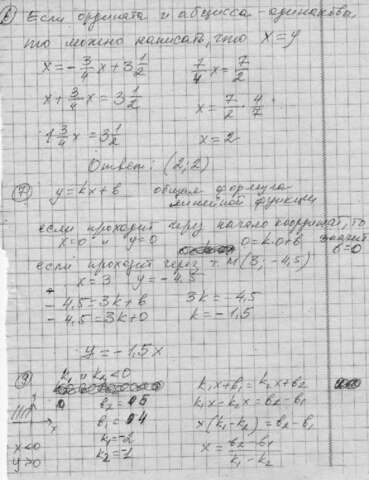 Если ордината и абсцисса - одинаковы,
то можно написать, что x = y
x = -3/4 x + 3 1/2
7/4 x = 7/2
x + 3/4 x = 3 1/2
x = 7/2 · 4/7
1 3/4 x = 3 1/2
x = 2
Ответ: (2; 2)
7 y = kx + b общая формула
линейной функции
если проходит через начало координат, то
x = 0 и y = 0 0 = k·0 + b значит
b = 0
если проходит через т. M (3; -4,5)
x = 3 y = -4,5
-4,5 = 3k + b 3k = -4,5
-4,5 = 3k + 0 k = -1,5
y = -1,5x
9 k₁ и k₂ < 0
k₁x + b₁ = k₂x + b₂
b₂ =
k₁x - k₂x = b₂ - b₁
b₁ =
x(k₁ - k₂) = b₂ - b₁
k₁ = -2
k₂ = -1
x = b₂ - b₁ / k₁ - k₂
x
x < 0
y > 0